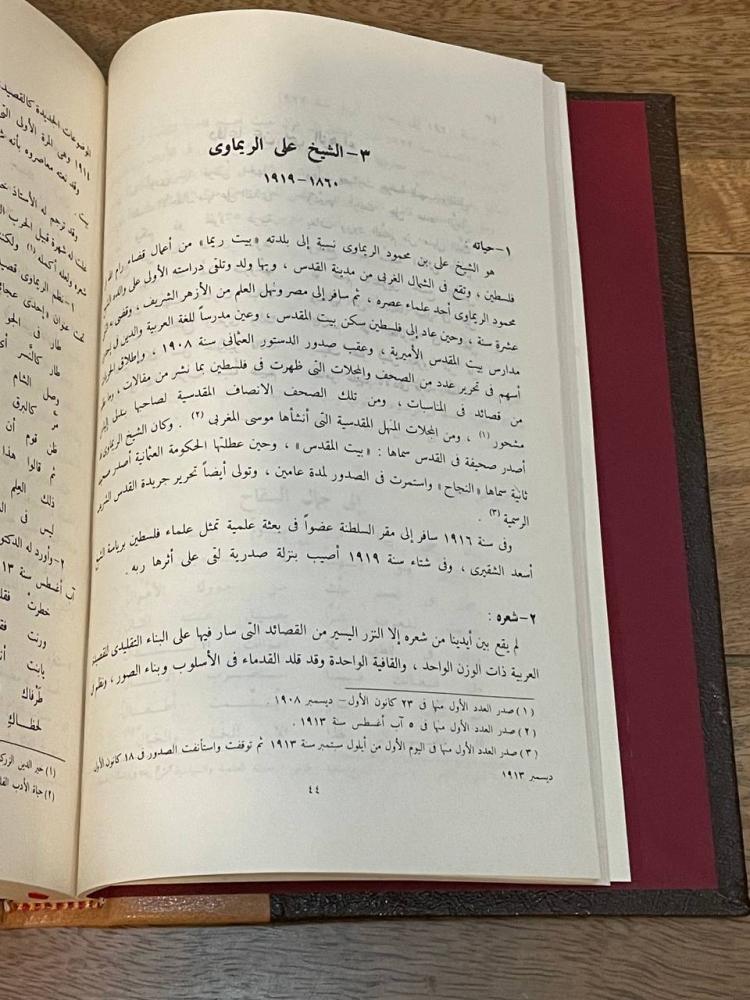 ٣- الشيخ على الريماوى
١٨٦٠-١٩١٩
١- حياته :
هو الشيخ على بن محمود الريماوى نسبة إلى بلدته «بيت ريما» من أعمال قضاء رام الله
فلسطين ، وتقع فى الشمال الغربى من مدينة القدس ، وبها ولد وتلقى دراسته الأولى على والده الشيخ
محمود الريماوى أحد علماء عصره ، ثم سافر إلى مصر ونهل العلم من الأزهر الشريف ، وقضى
عشرة سنة ، وحين عاد إلى فلسطين سكن بيت المقدس ، وعين مدرساً للغة العربية والدين فى
مدارس بيت المقدس الأميرية ، وعقب صدور الدستور العثمانى سنة ١٩٠٨ ، وإطلاق الحريات
أسهم فى تحرير عدد من الصحف والمجلات التى ظهرت فى فلسطين بما نشر من مقالات ،
من قصائد فى المناسبات ، ومن تلك الصحف الانصاف المقدسية لصاحبها بندلى
مشحور (١) ، ومن المجلات المنهل المقدسية التى أنشأها موسى المغربى (٢) . وكان الشيخ الريماوى
أصدر صحيفة فى القدس سماها : «بيت المقدس» ، وحين عطلتها الحكومة العثمانية أصدر
ثانية سماها «النجاح» واستمرت فى الصدور لمدة عامين ، وتولى أيضاً تحرير جريدة القدس الشريف
الرسمية (٣) .
وفى سنة ١٩١٦ سافر إلى مقر السلطنة عضواً فى بعثة علمية تمثل علماء فلسطين برياسة الشيخ
أسعد الشقيرى ، وفى شتاء سنة ١٩١٩ أصيب بنزلة صدرية لقى على أثرها ربه .
٢- شعره :
لم يقع بين أيدينا من شعره إلا النزر اليسير من القصائد التى سار فيها على البناء التقليدى للقصيدة
العربية ذات الوزن الواحد ، والقافية الواحدة وقد قلد القدماء فى الأسلوب وبناء الصور ، ونظم فى
(١) صدر العدد الأول منها فى ٢٣ كانون الأول- ديسمبر ١٩٠٨ .
(٢) صدر العدد الأول منها فى ٥ آب أغسطس سنة ١٩١٣ .
(٣) صدر العدد الأول منها فى اليوم الأول من أيلول ستمبر سنة ١٩١٣ ثم توقفت واستأنفت الصدور فى ١٨ كانون الأول
ديسمبر ١٩١٣
٤٤
الموضوعات الجديدة كالقصيدة
١٩١١ وهى المرة الأولى التى
وقد نعته معاصروه بأنه
بيت .
وقد ترجم له الأستاذ
شهرة قبل الحرب
(١) ولكنه
١- نظم الريماوى
تحت عنوان «إحدى
طار فى الجو
طار كالنسر
وصل الشام
مرّ كالبرق
ظن قوم أن
ثم قالوا هذا
ذلك العلم
ليس فى
٢- وأورد له الدكتور
آب أغسطس سنة
خطرت
ورنت
طرفاك
لحظاك
(١) خير الدين
(٢) حياة الأدب